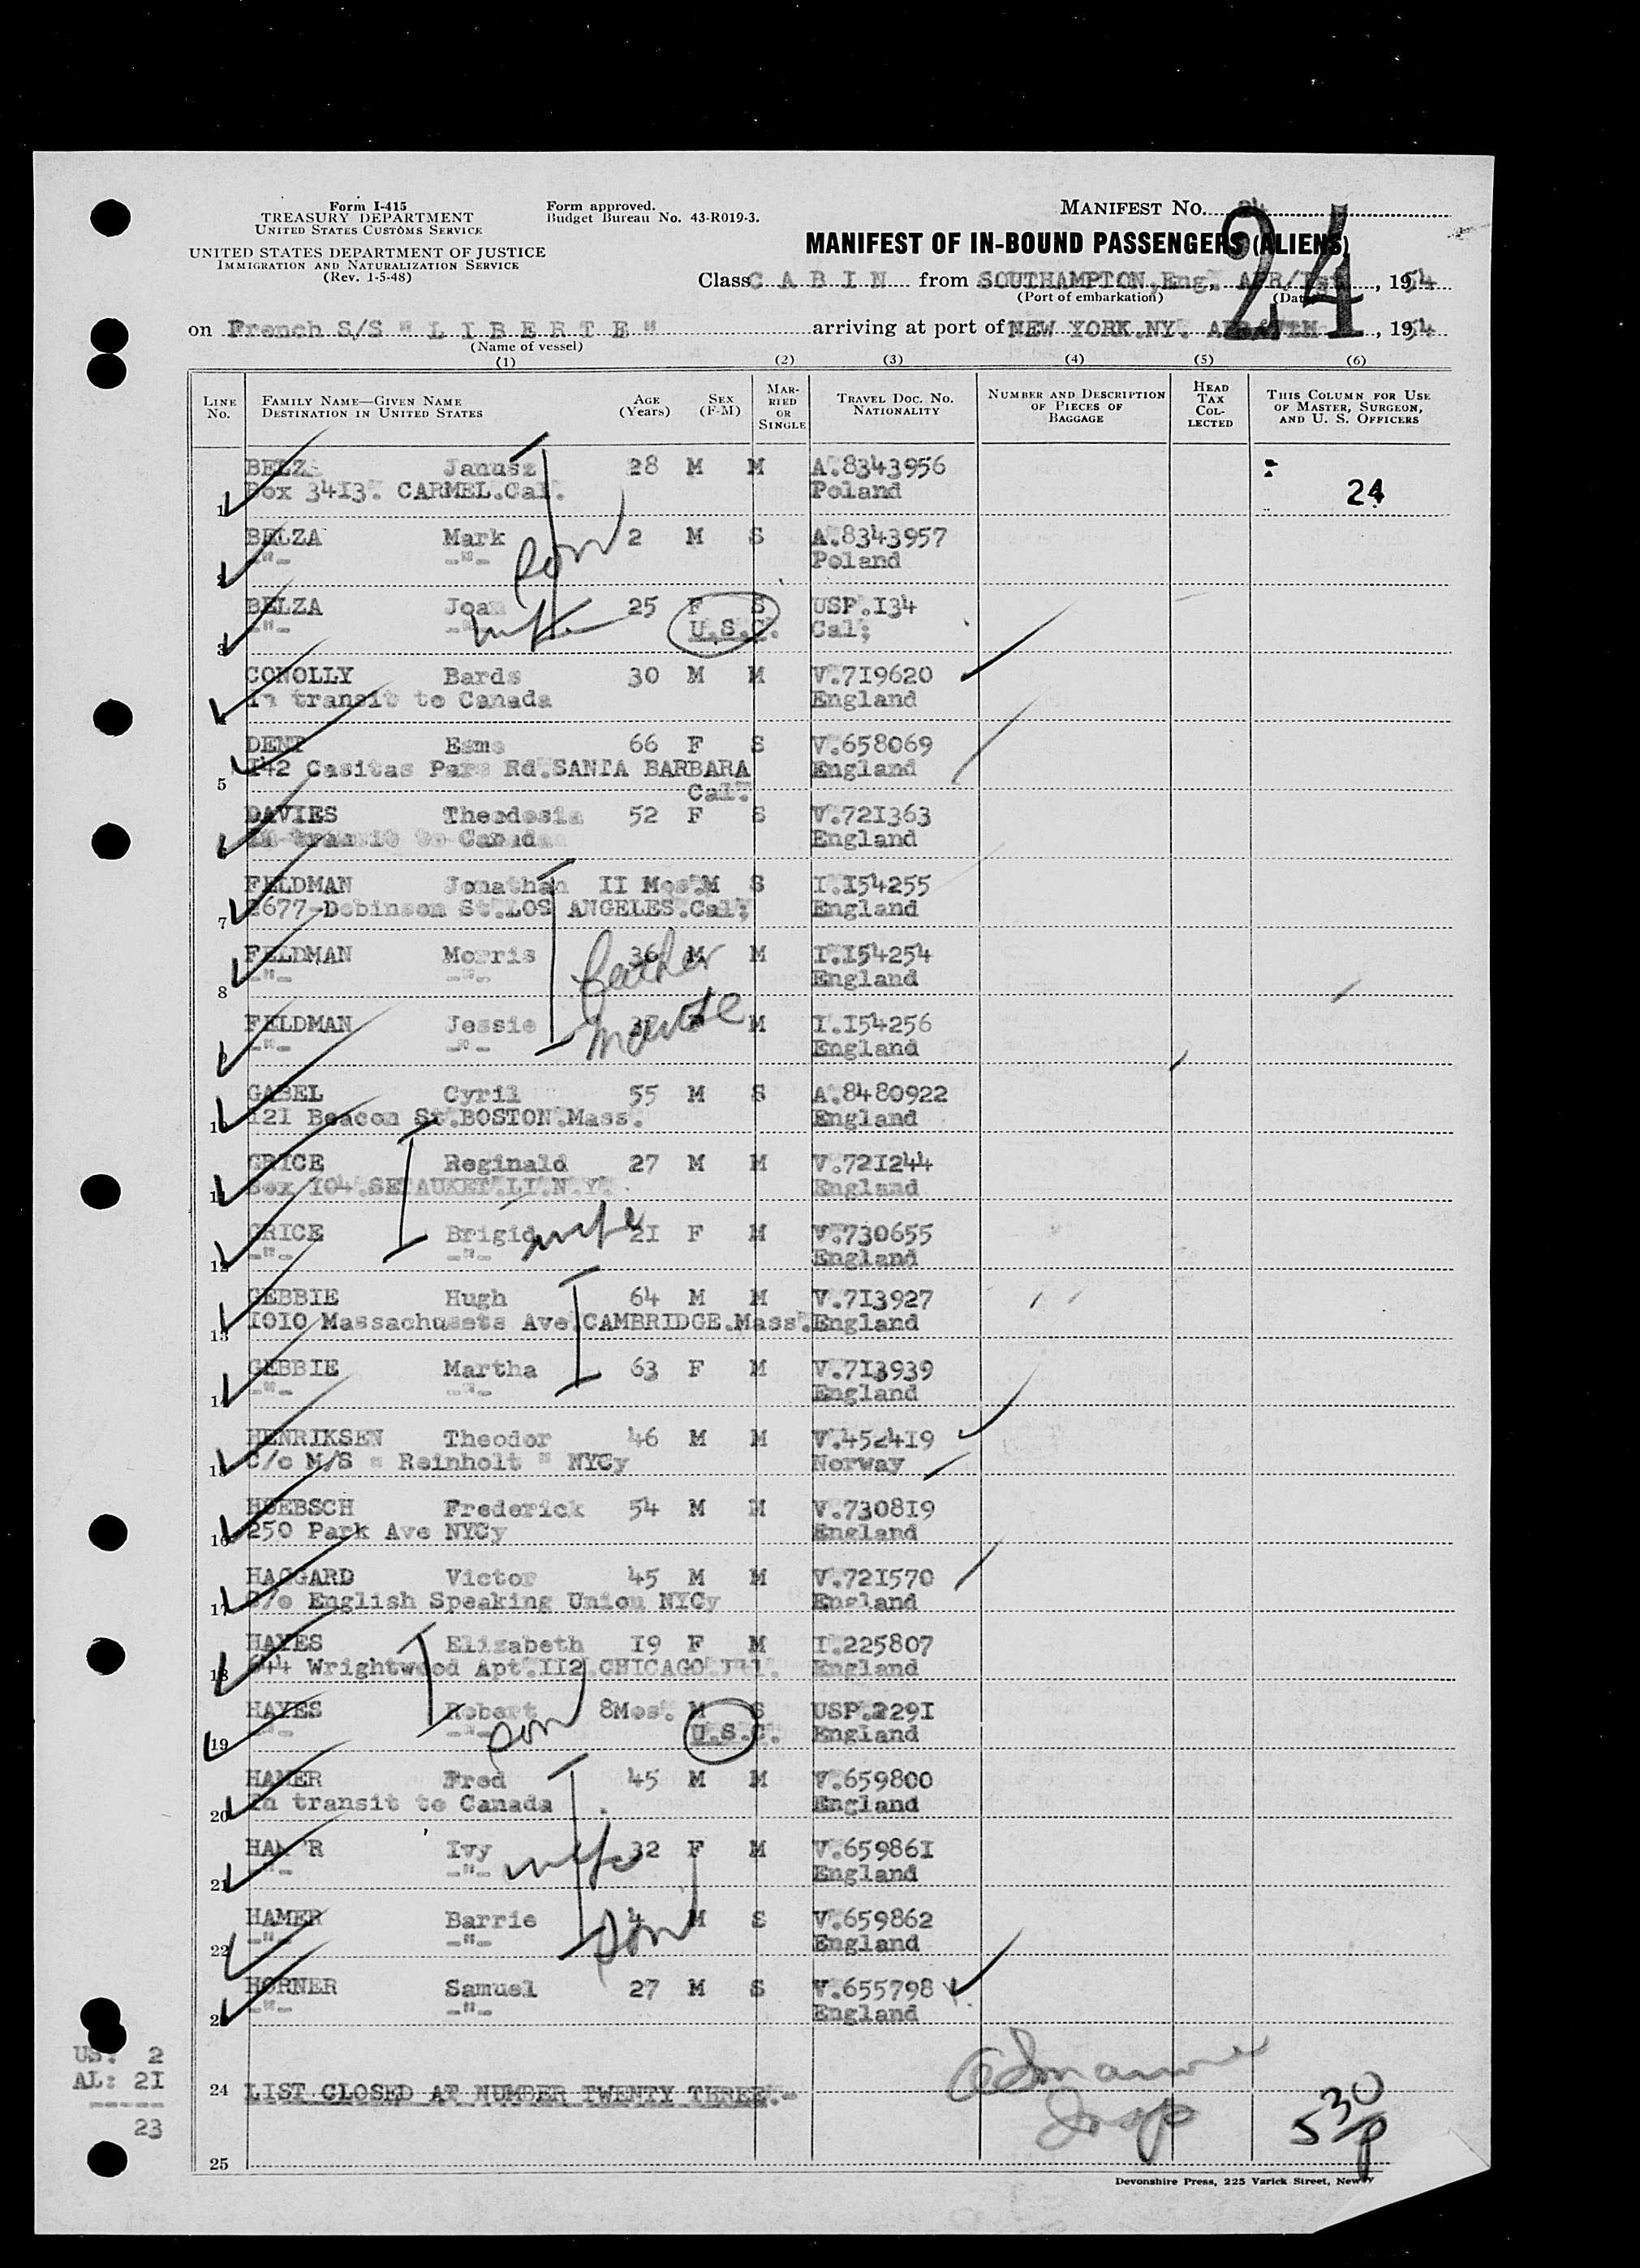 Form I-415
TREASURY DEPARTMENT
UNITED STATES CUSTOMS SERVICE
UNITED STATES DEPARTMENT OF JUSTICE
IMMIGRATION AND NATURALIZATION SERVICE
(Rev. 1-5-48)
Form approved.
Budget Bureau No. 43-R019-3.
MANIFEST No. 24
24
MANIFEST OF IN-BOUND PASSENGERS (ALIENS)
Class C A B I N from SOUTHAMPTON,Eng. APR/1st, 1954
(Port of embarkation) (Date)
on French S/S " L I B E R T E " arriving at port of NEW YORK.NY. 1954
(Name of vessel)
(1) (2) (3) (4) (5) (6)
LINE No. FAMILY NAME—GIVEN NAME DESTINATION IN UNITED STATES AGE (Years) SEX (F-M) MARRIED OR SINGLE TRAVEL DOC. No. NATIONALITY NUMBER AND DESCRIPTION OF PIECES OF BAGGAGE HEAD TAX COLLECTED THIS COLUMN FOR USE OF MASTER, SURGEON, AND U. S. OFFICERS
BELZA Janusz 28 M M A.8343956
1 Box 34I3. CARMEL.Cal. Poland 24
BELZA Mark 2 M S A.8343957
2 -"- -"- son Poland
BELZA Joan 25 F S USP.I34
3 -"- -"- wife U.S.C. Cal;
CONOLLY Bards 30 M M V.7I9620
4 In transit to Canada England
DENT Esme 66 F S V.658069
5 I42 Casitas Pars Rd.SANTA BARBARA England
Cal.
DAVIES Theodosia 52 F S V.72I363
6 In transit to Canada England
FELDMAN Jonathan II Mos.M S I.I54255
7 2677-Dobinson St.LOS ANGELES.Cal; England
FELDMAN Morris 36 M M I.I54254
8 -"- -"- father England
FELDMAN Jessie 37 M I.I54256
9 -"- -"- England
GABEL Cyril 55 M S A.8480922
10 I2I Beacon St.BOSTON.Mass. England
GRICE Reginald 27 M M V.72I244
11 Box I04.SETAUKET.LI.N.Y. England
GRICE Brigid wife 2I F M V.730655
12 -"- -"- England
GEBBIE Hugh 64 M M V.7I3927
13 I0I0 Massachusets Ave.CAMBRIDGE.Mass. England
GEBBIE Martha 63 F M V.7I3939
14 -"- -"- England
HENRIKSEN Theodor 46 M M V.4524I9
15 C/o M/S " Reinholt " NYCy Norway
HUEBSCH Frederick 54 M M V.7308I9
16 250 Park Ave NYCy England
HAGGARD Victor 45 M M V.72I570
17 C/o English Speaking Union NYCy England
HAYES Elizabeth I9 F M I.225807
18 644 Wrightwood Apt.II2.CHICAGO Ill. England
HAYES Robert 8Mos. M S USP.229I
19 -"- -"- son U.S.C. England
HAMER Fred 45 M M V.659800
20 In transit to Canada England
HAM'R Ivy 32 F M V.65986I
21 -"- -"- wife England
HAMER Barrie 4 M S V.659862
22 -"- -"- son England
HORNER Samuel 27 M S V.655798
23 -"- -"- England
US: 2
AL: 2I
-----
23
24 LIST CLOSED AT NUMBER TWENTY THREE.-
Insp
5 30 P
25
Devonshire Press, 225 Varick Street, New Y